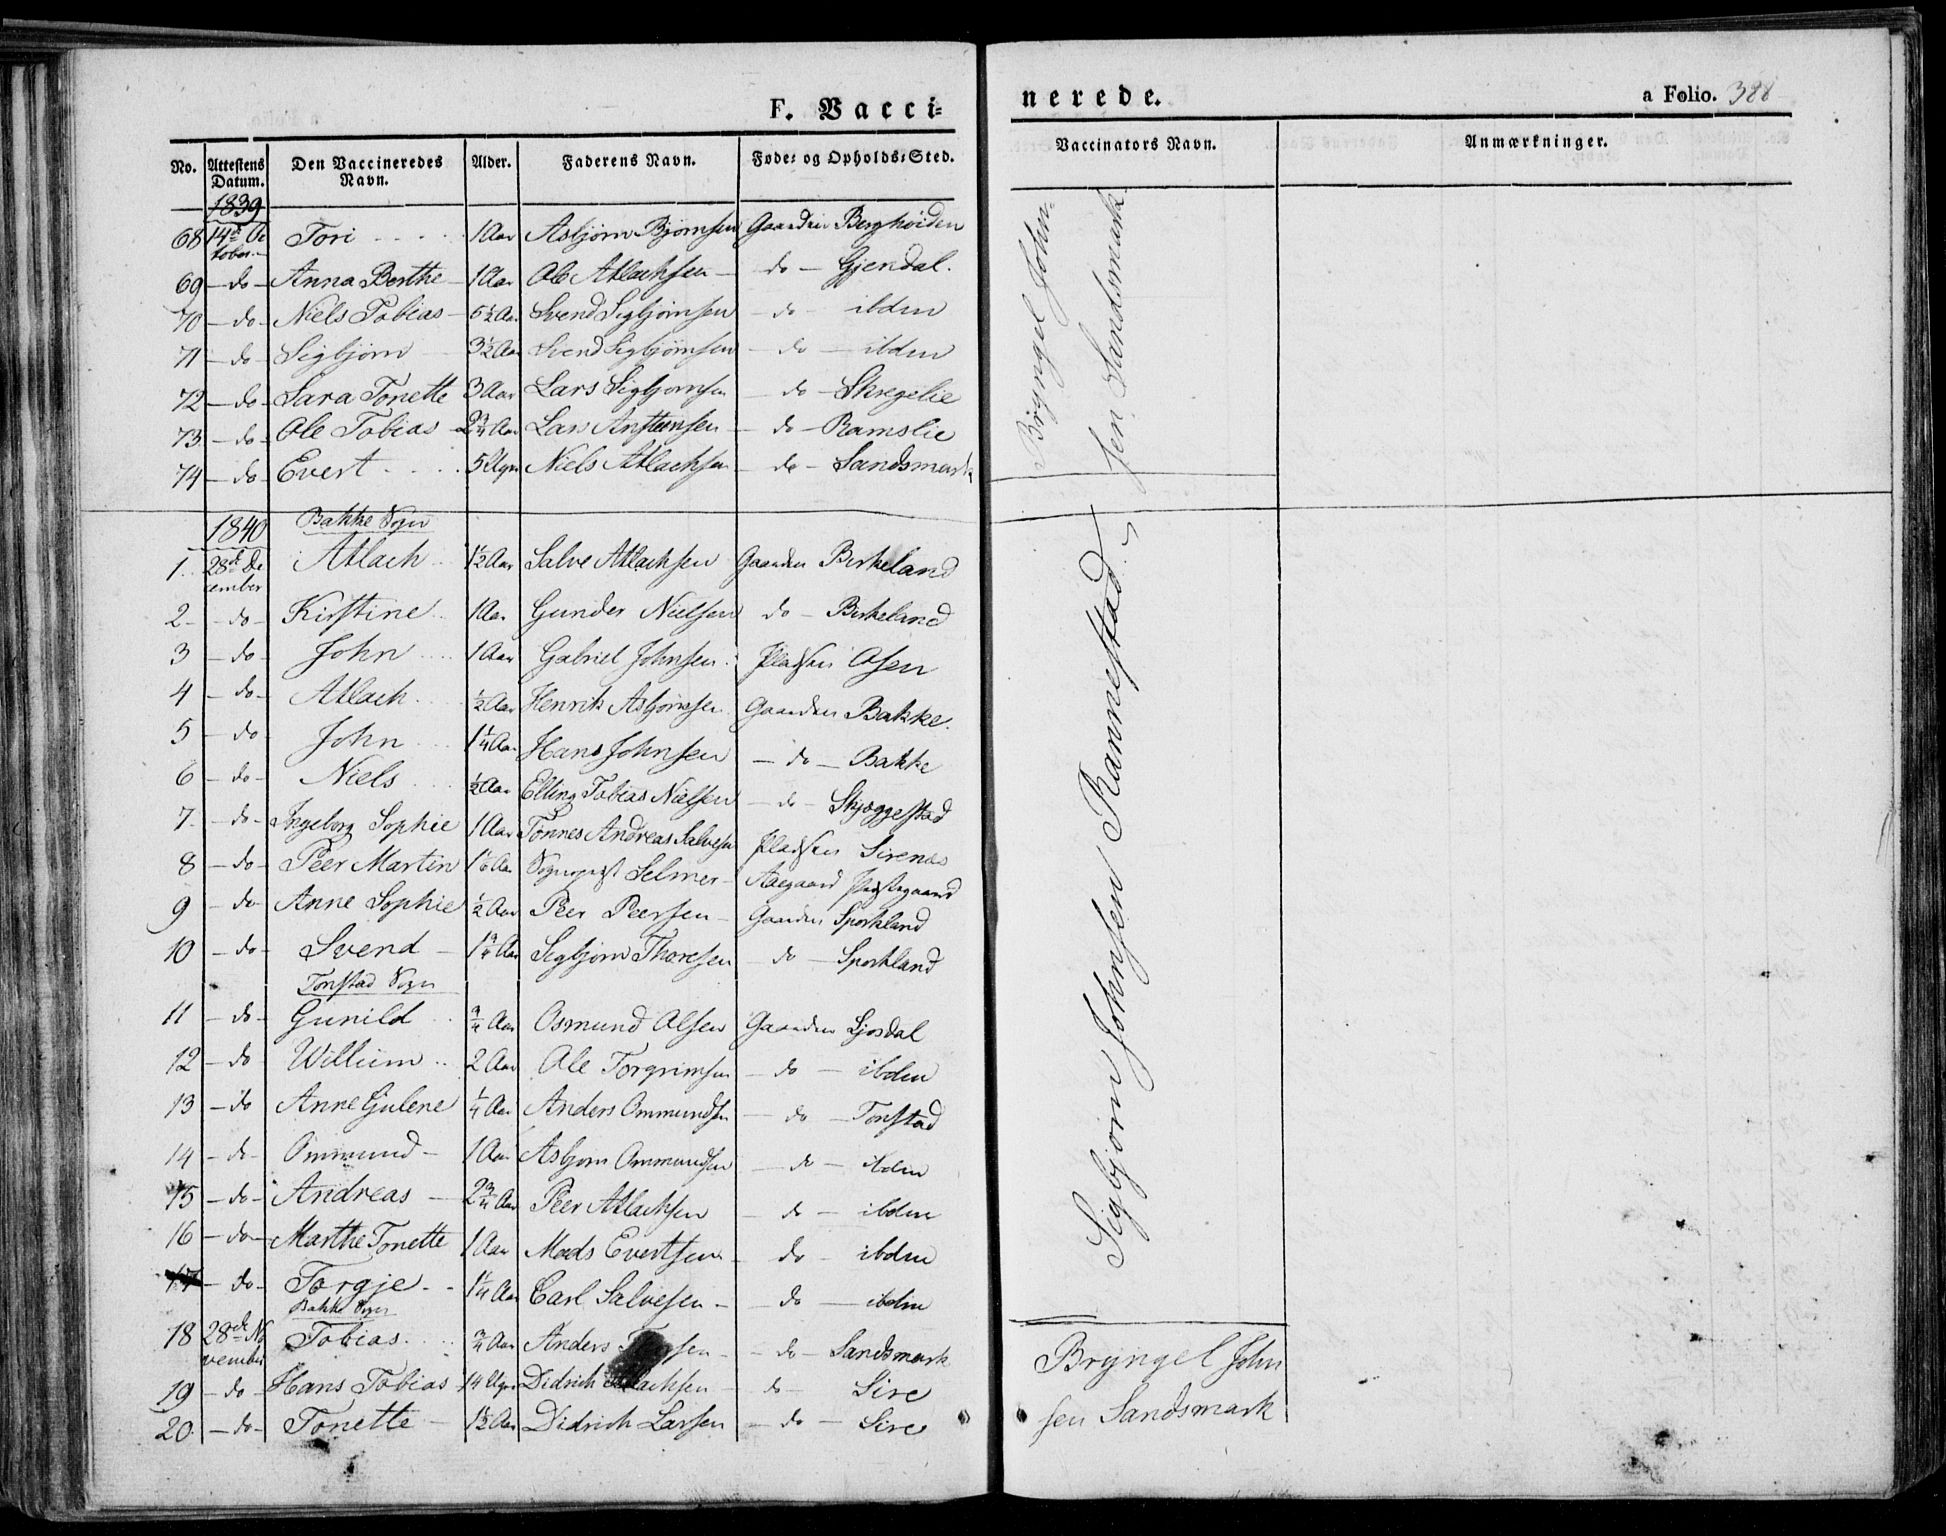 F. Vacci= nerede. a Folio. 388
No. Attestens Datum. Den Vaccineredes Navn. Alder. Faderens Navn. Føde= og Opholds=Sted. Vaccinators Navn. Anmærkninger.
1839
68 14de Oc tober Tori 1 Aar Asbjørn Bjørnsen Gaarden Berghøiden
69 do Anna Berthe 1 Aar Ole Atlachsen do Gjendal.
70 do Niels Tobias 5½ Aar Svend Sigbjørnsen do ibden
71 do Sigbjørn 3½ Aar Svend Sigbjørnsen do ibden
72 do Sara Tonette 3 Aar Lars Sigbjørnsen do Skregelie
73 do Ole Tobias 2¾ Aar Lars Anstensen do Ramslie
74 do Evert 5 Ugr Niels Atlachsen do Sandsmark
Bryngel John-
sen Sandsmark
1840 Bakke Sogn
1. 28de De cember Atlach 1½ Aar Salve Atlachsen Gaarden Birkeland
2 do Kirstine 1 Aar Gunder Nielsen do Birkeland
3 do John 1 Aar Gabriel Johnsen Pladsen Osen
4 do Atlach ½ Aar Henrik Asbjørnsen Gaarden Bakke.
5 do John 1¼ Aar Hans Johnsen do Bakke
6 do Niels ½ Aar Elling Tobias Nielsen do Skjeggestad
7 do Ingeborg Sophie 1 Aar Tønnes Andreas Salvesen Pladsen Sirenes
8 do Peer Martin 1⅙ Aar Sognepræst Selmer Aaegaard Præstegaard
9 do Anne Sophie ½ Aar Peer Peersen Gaarden Sporkland
10 do Svend 1¾ Aar Sigbjørn Thoresen do Sporkland
Tonstad Sogn
11 do Gunild ¾ Aar Osmund Olsen Gaarden Ljosdal
12 do Willum 2 Aar Ole Torgrimsen do ibden
13 do Anne Gulene ¼ Aar Anders Ommundsen do Tonstad
14 do Ommund 1 Aar Asbjørn Ommundsen do ibden
15 do Andreas 2¾ Aar Peer Atlachsen do ibden
16 do Marthe Tonette 1 Aar Mads Evertsen do ibden
17 do Torgje 1¼ Aar Carl Salvesen do ibden
Sigbjørn Johnsen Rannestad
Bakke Sogn
18 28de No vember Tobias ¾ Aar Anders do Sandsmark
19 do Hans Tobias 14 Ugr Didrich Atlachsen do Sire
20 do Tonette 1½ Aar Didrich Larsen do Sire
Bryngel John
sen Sandsmark